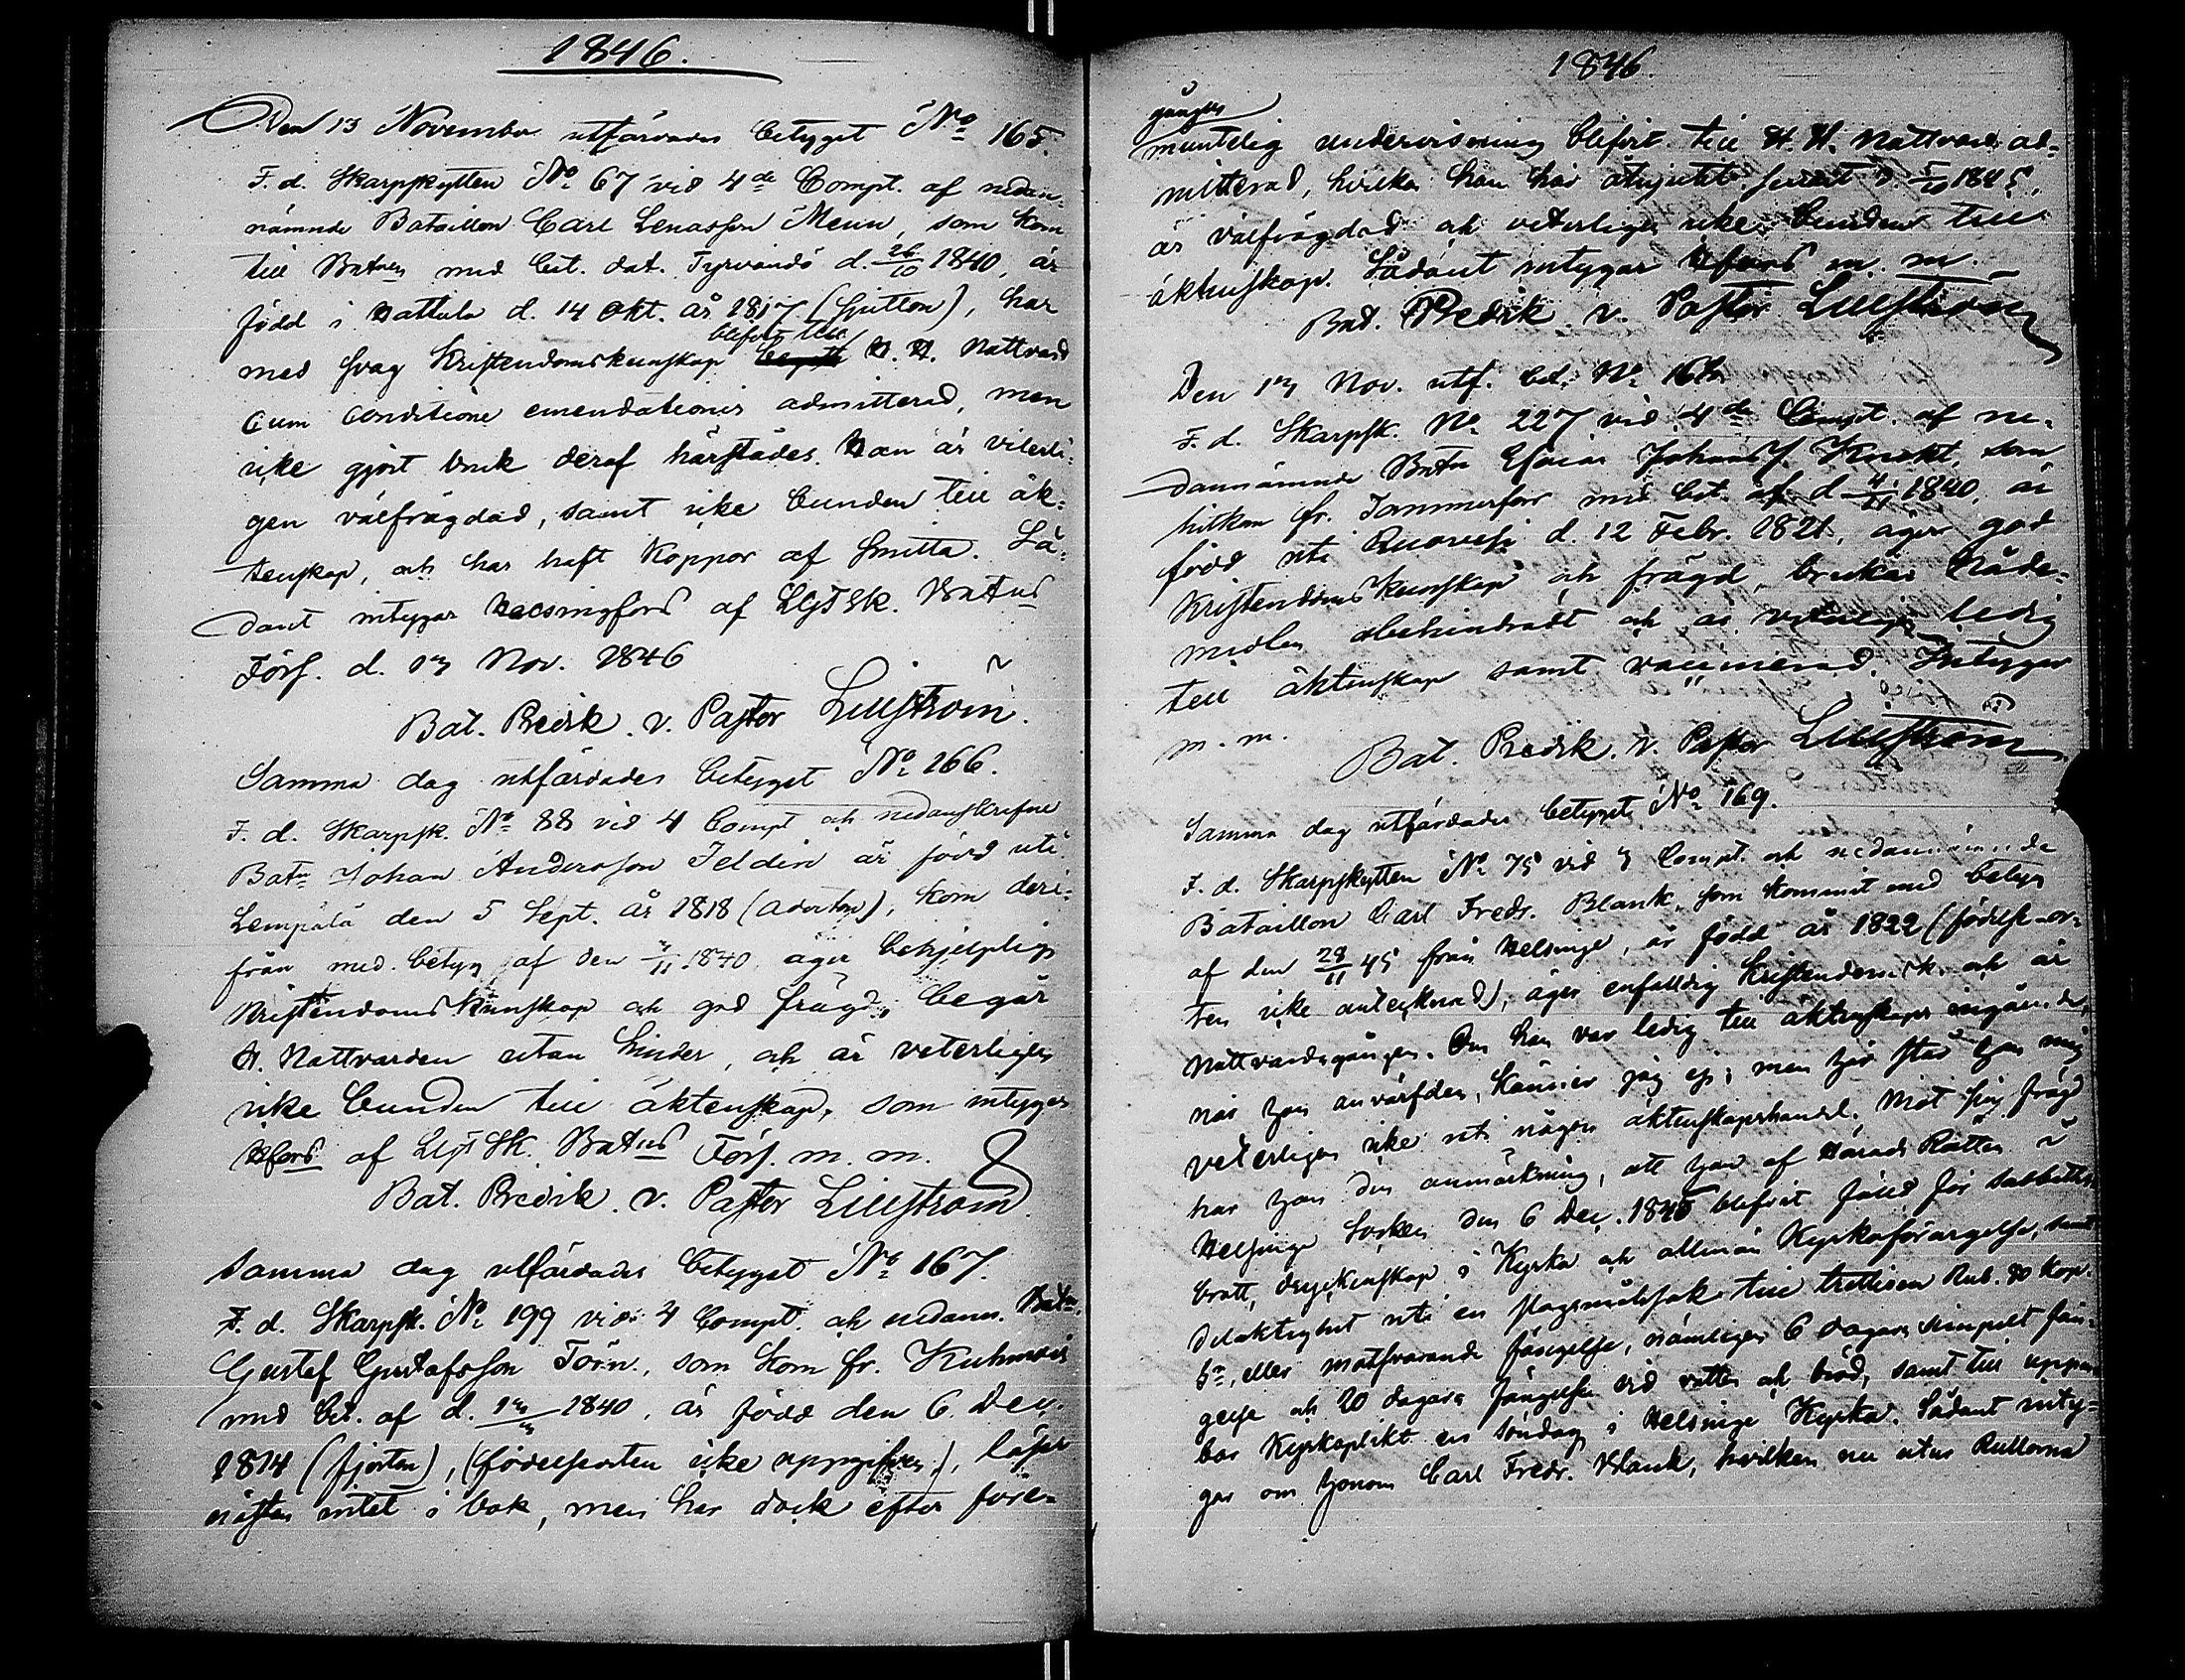 1846.
Den 13 November utfärdades betyget No 165.
F. d. Skarpskytten No 67 vid 4de Compt. af nedan-
nämnde Bataillon Carl Lenasson Menn, som kom
till Batnen med bet. dat. Tyrvändö d. 26/10 1840, är
född i Hattula d. 14 Okt. år 1817 (sjutton), har
med svag Kristendomskunskap blifvit till H. H. Nattvard
cum conditione emendationis admitterad, men
icke gjort bruk deraf härstädes. Han är veterli-
gen välfrägdad, samt icke bunden till äk-
tenskap, och har haft koppor af smitta. Så-
dant intygar Helsingfors af LGFSk. Batns
Förs. d. 13 Nov. 1846
Bat. Predik. v. Pastor Liljeström.
Samma dag utfärdades betyget No 166.
F. d. Skarpsk. No 88 vid 4 Compt och nedanskrefne
Batn Johan Andersson Feldin är född uti
Lempälä den 5 Sept. år 1818 (aderton), kom deri-
från med betyg af den 4/11 1840, äger behjelplig
Kristendoms Kunskap och god frägd, begår
H. Nattvarden utan hinder, och är veterligen
icke bunden till äktenskap, som intygas
Hfors af LGF Sk. Batns Förs. m. m.
Bat. Predik. v. Pastor Liljeström
Samma dag utfärdades betyget No 167.
F. d. Skarpsk. No 199 vid 4 Compt. och nedann. Batn
Gustaf Gustafsson Törn, som kom fr. Kuhmois
med bet. af d. 1840, är född den 6 Dec.
1814 (fjorton), (födelseorten icke uppgifven), läser
nästan intet i bok, men har dock efter före-
1846.
gången
muntelig undervisning blifvit till H. H. Nattvard ad-
mitterad, hvilken han har åtnjutit senast d. 5/10 1845,
är välfrägdad och veterligen icke bunden till
äktenskap. Sådant intygar Hfors m. m.
Bat. Predik v. Pastor Liljeström
Den 13 Nov. utf. bet. No 168
F. d. Skarpsk. No 227 vid 4de Compt. af ne-
dannämnde Batn Esaias Johanss. Knekt, som
hitkom fr. Tammerfors med bet. af d. 4/11 1840, är
född uti Quovesi d. 12 Febr. 1821, äger god
Kristendoms Kunskap och frägd, brukar Nåde-
medlen obehindradt och är veterligen ledig
till äktenskap samt vaccinerad. Intygar
m. m.
Bat. Predik. v. Pastor Liljeström
Samma dag utfärdades betyget No 169.
F. d. Skarpskytten No 75 vid 3 Compt. och nedannämnde
Bataillon Carl Fredr. Blank, som kommit med betyg
af den 28/11 45 från Helsinge, är född år 1822 (födelse-or-
ten icke antecknad), äger enfalldig Kristendomsk. och är
Nattvardsgången. Om han var ledig till äktenskaps ingående,
när han anvärfdes, känner jag ej; men här står han mig
veterligen icke uti någon äktenskapshandel. Mot sin frägd
har han den anmärkning, att han af Härads Rätten i
Helsinge Socken den 6 Dec. 1845 blifvit fälld för sabbaths-
brott, dryckenskap i Kyrka och allmän Kyrkoförargelse, samt
delaktighet uti en slagsmålssak till trettioen Rub. 80 kop.
Sr, eller motsvarande fängelse, nämligen 6 dagars simpelt fän-
gelse och 20 dagars fängelse vid vatten och bröd, samt till uppen-
bar Kyrkoplikt en söndag i Helsinge Kyrka. Sådant inty-
gas om honom Carl Fredr. Blank, hvilken nu utur Rullorna